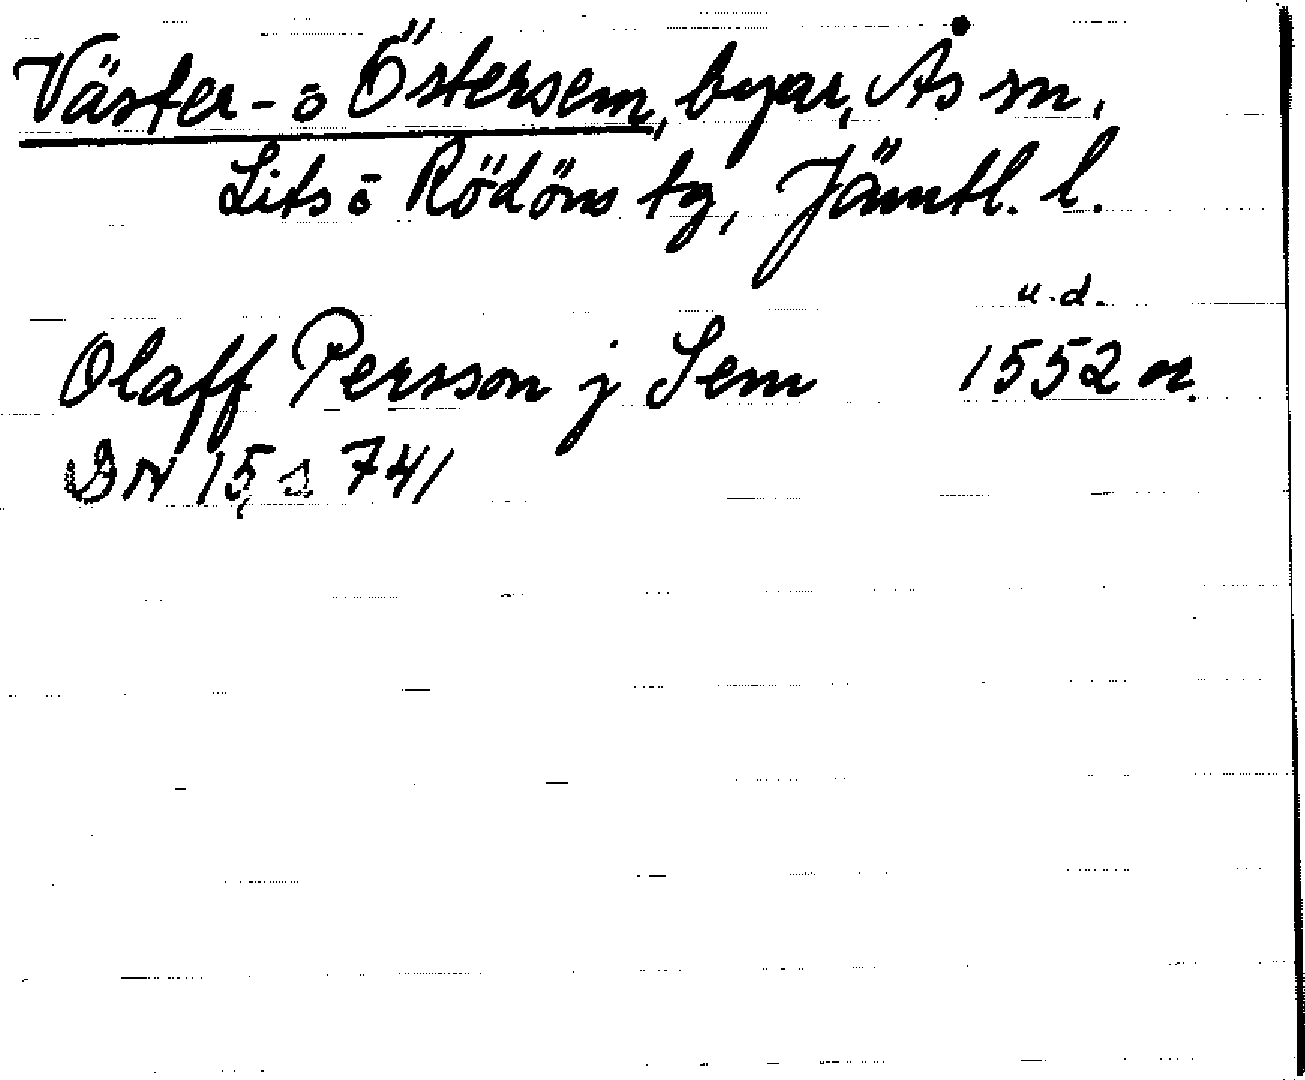 Väster- o Östersem, byar, Ås sn,
Lits o Rödöns tg, Jämtl. l.
u.d.
Olaff Persson j Sem 1552 or.
DN 15, s 741